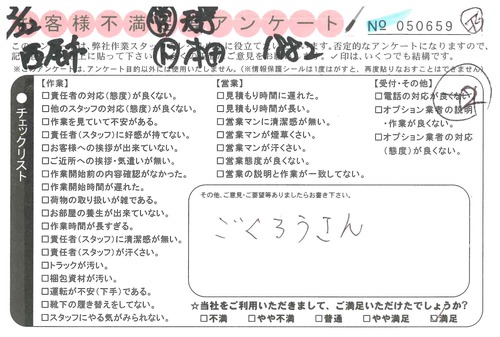 お客様不満 アンケート
№ 050659
チェックリスト
【作業】
□責任者の対応(態度)が良くない。
□他のスタッフの対応(態度)が良くない。
□作業を見ていて不安がある。
□責任者(スタッフ)に好感が持てない。
□お客様への挨拶が出来ていない。
□ご近所への挨拶・気遣いが無い。
□作業開始前の内容確認がなかった。
□作業開始時間が遅れた。
□荷物の取り扱いが雑である。
□お部屋の養生が出来ていない。
□作業時間が長すぎる。
□責任者(スタッフ)に清潔感が無い。
□責任者(スタッフ)が汗くさい。
□トラックが汚い。
□梱包資材が汚い。
□運転が不安(下手)である。
□靴下の履き替えをしてない。
□スタッフにやる気がみられない。
【営業】
□見積もり時間に遅れた。
□見積もり時間が長い。
□営業マンに清潔感が無い。
□営業マンが煙草くさい。
□営業マンが汗くさい。
□営業態度が良くない。
□営業の説明と作業が一致してない。
【受付・その他】
□電話の対応が良くない
□オプション業者の説明
・作業が良くない。
□オプション業者の対応
(態度)が良くない。
その他、ご意見・ご要望等ありましたらお書き下さい。
ごくろうさん
☆当社をご利用いただきまして、ご満足いただけたでしょうか?
□不満 □やや不満 □普通 □やや満足 ☑満足